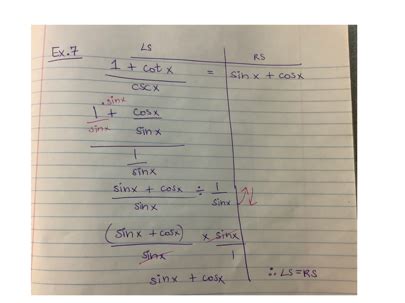 Ex.7 LS RS
1 + cot x / csc x = sin x + cos x
1 · sinx / sinx + cosx / sinx
1 / sinx
sinx + cosx / sinx ÷ 1 / sinx
(sinx + cosx) / sinx × sinx / 1
sinx + cosx ∴ LS = RS